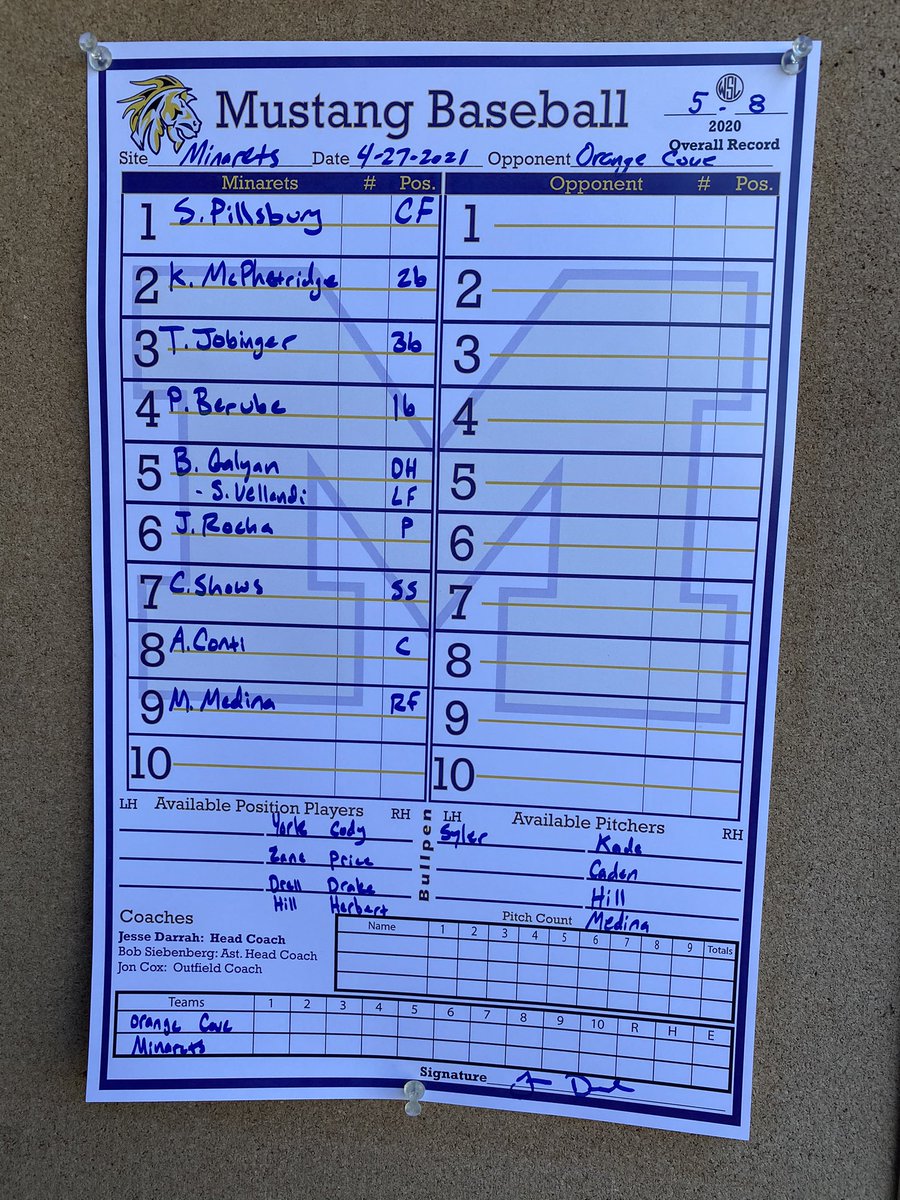 Mustang Baseball
WSL
5 - 8
2020
Overall Record
Site Minarets Date 4-27-2021 Opponent Orange Cove
Minarets # Pos. Opponent # Pos.
1 S. Pillsbury CF 1
2 K. McPhetridge 2b 2
3 T. Jobinger 3b 3
4 P. Berube 1b 4
5 B. Galyan DH 5
- S. Vellandi LF
6 J. Rocha P 6
7 C. Shows SS 7
8 A. Conti C 8
9 M. Medina RF 9
10 10
LH Available Position Players RH Bullpen LH Available Pitchers RH
York Cody Syler Kade
Zane Price Caden
Drell Drake Hill
Hill Herbert Medina
Coaches
Jesse Darrah: Head Coach
Bob Siebenberg: Ast. Head Coach
Jon Cox: Outfield Coach
Pitch Count
Name 1 2 3 4 5 6 7 8 9 Totals
Teams 1 2 3 4 5 6 7 8 9 10 R H E
Orange Cove
Minarets
Signature